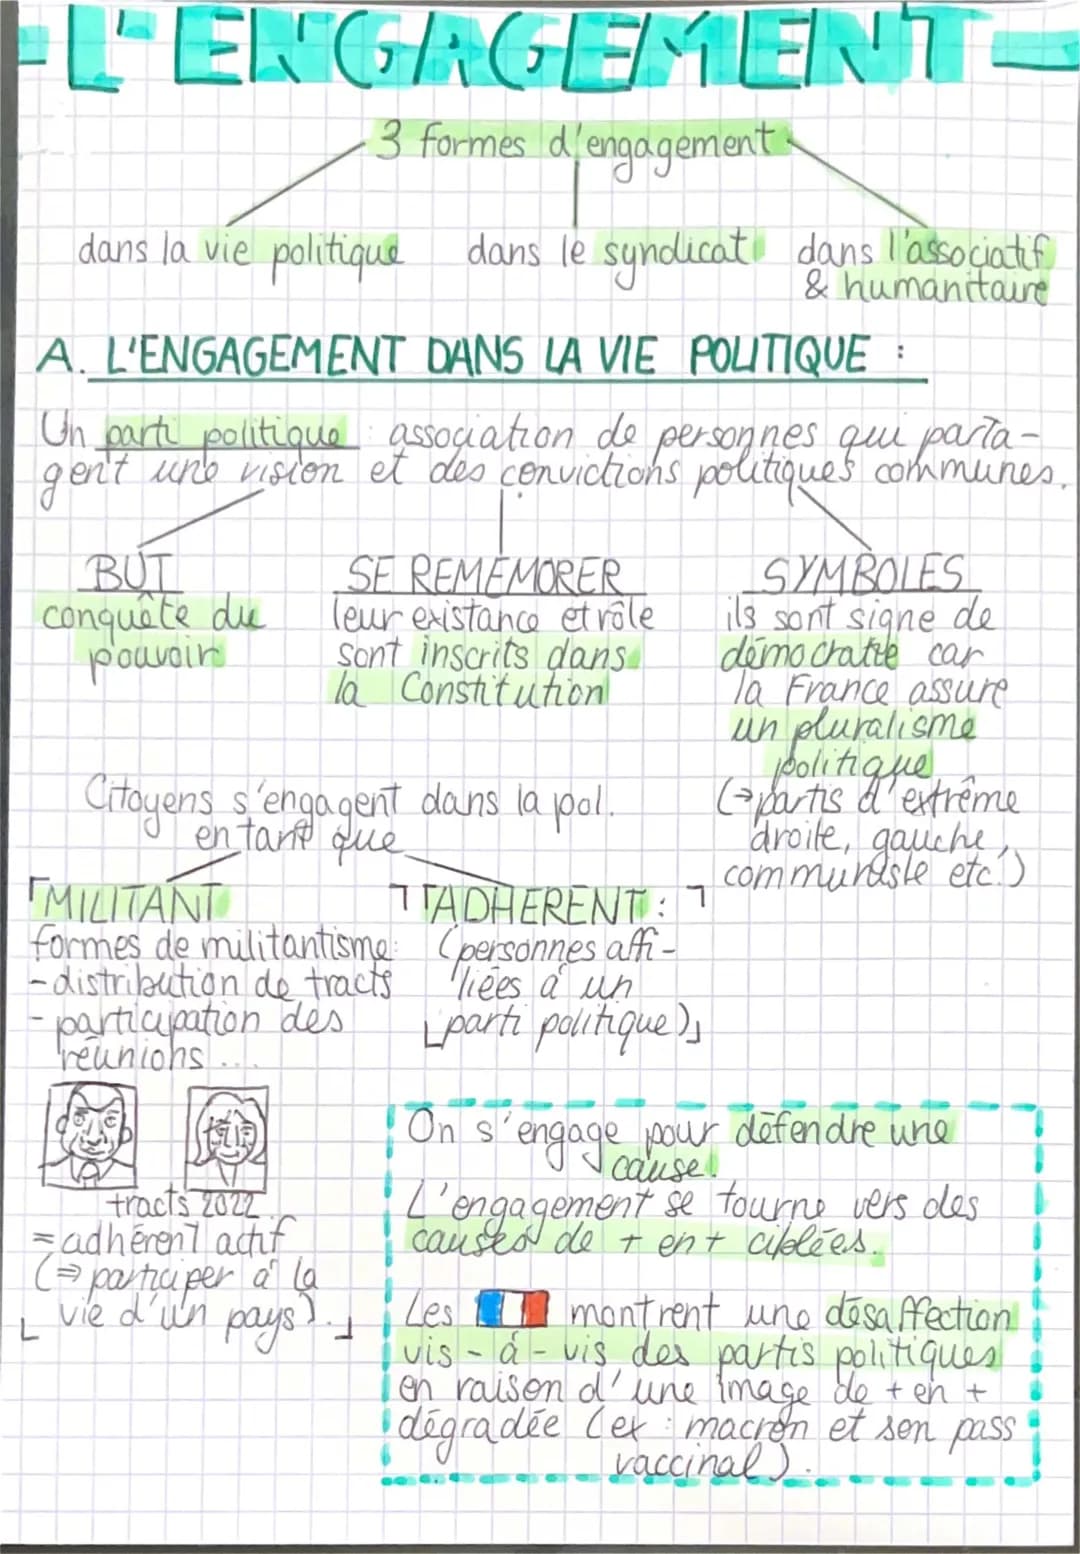 -L'ENGAGEMENT-
3 formes d'engagement
dans la vie politique
dans le syndicat
dans l'associatif
& humanitaire
A. L'ENGAGEMENT DANS LA VIE POLITIQUE :
Un parti politique : association de personnes qui parta-
gent une vision et des convictions politiques communes.
BUT
conquête du
pouvoir
SE REMÉMORER
leur existance et rôle
sont inscrits dans
la Constitution
SYMBOLES
ils sont signe de
démocratie car
la France assure
un pluralisme
politique
(⇒partis d'extrême
droite, gauche,
communiste etc.)
Citoyens s'engagent dans la pol.
en tant que
MILITANT
formes de militantisme:
-distribution de tracts
- participation des
réunions ...
tracts 2022
= adhérent actif
(⇒ participer à la
vie d'un pays).
ADHERENT :
(personnes affi-
liées à un
parti politique)
On s'engage pour défendre une
cause.
L'engagement se tourne vers des
causes de + en + ciblées.
Les 🇫🇷 montrent une désaffection
vis-à-vis des partis politiques
en raison d'une image de + en +
dégradée (ex : macron et son pass
vaccinal).